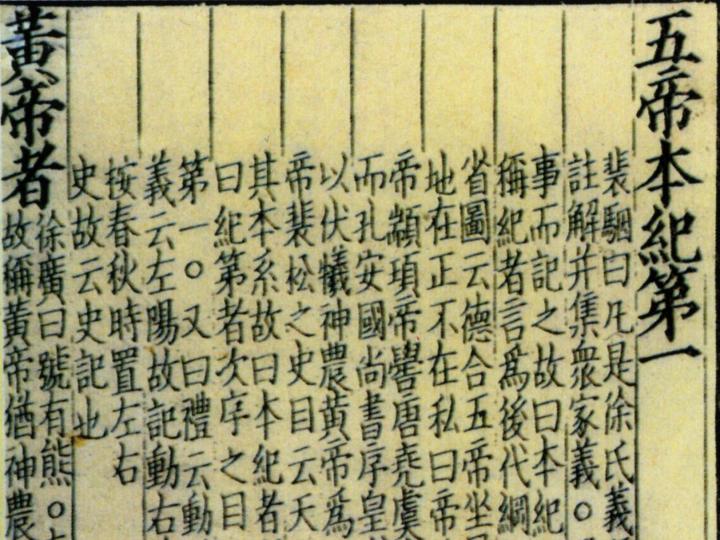 五帝本紀第一
裴駰曰凡是徐氏義
註解并集衆家義○
事而記之故曰本紀
稱紀者言爲後代綱
省圖云德合五帝坐
地在正不在私曰帝
帝顓頊帝嚳唐堯虞
而孔安國尚書序皇
以伏犧神農黃帝爲
帝裴松之史目云天
其本系故曰本紀者
曰紀第者次序之目
第一○又曰禮云動
義云左陽故記動右
按春秋時置左右
史故云史記也
黃帝者
徐廣曰號有熊○
故稱黃帝猶神農